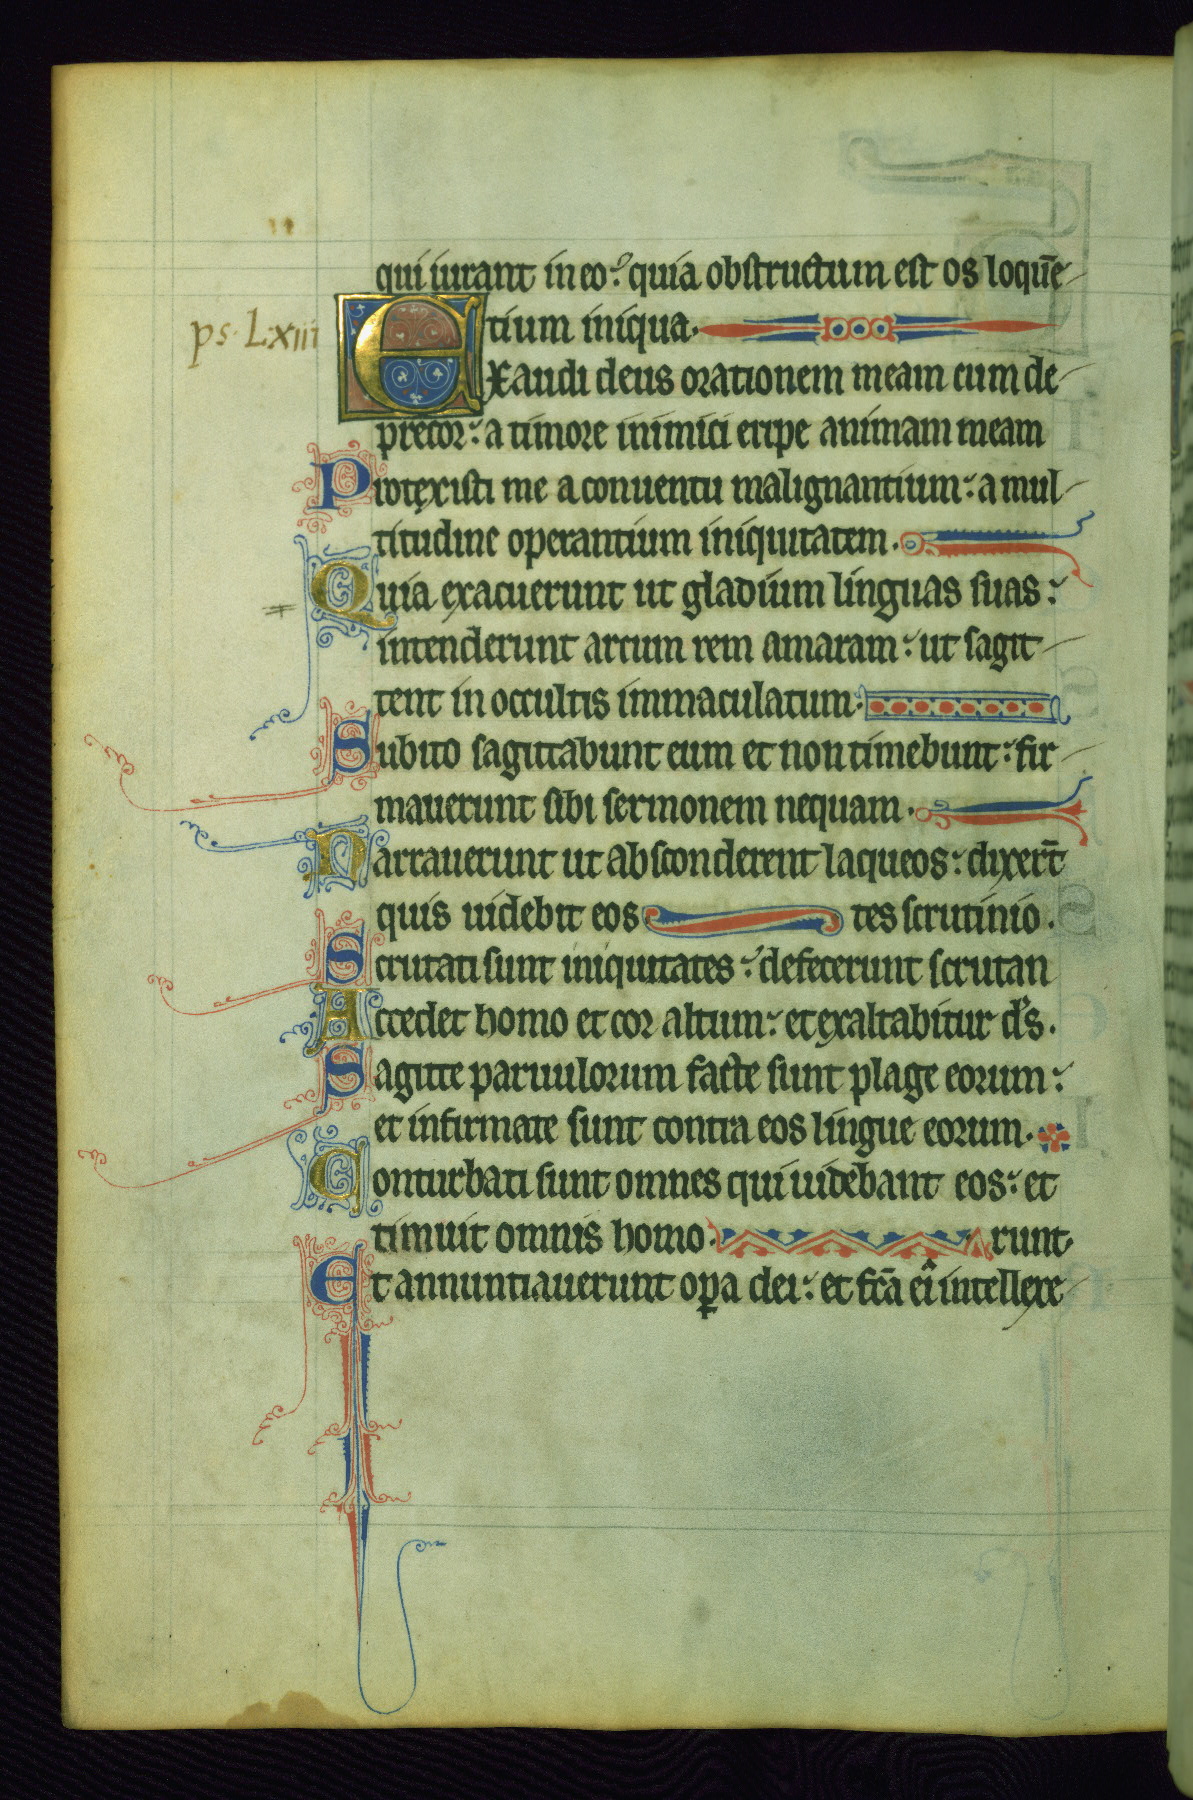 qui iurant in eo: quia obstructum est os loquē-
ps. Lxiii
tium iniqua.
Exaudi deus orationem meam cum de-
precor: a timore inimici eripe animam meam
Protexisti me a conuentu malignantium: a mul-
titudine operantium iniquitatem.
Quia exacuerunt ut gladium linguas suas:
intenderunt arcum rem amaram: ut sagit-
tent in occultis immaculatum.
Subito sagittabunt eum et non timebunt: fir-
mauerunt sibi sermonem nequam.
Narrauerunt ut absconderent laqueos: dixerūt
quis uidebit eos tes scrutinio.
Scrutati sunt iniquitates: defecerunt scrutan
Accedet homo et cor altum: et exaltabitur ds.
Sagitte paruulorum facte sunt plage eorum:
et infirmate sunt contra eos lingue eorum.
Conturbati sunt omnes qui uidebant eos: et
timuit omnis homo. runt.
Et annuntiauerunt opa dei: et fcā ei intellexe-